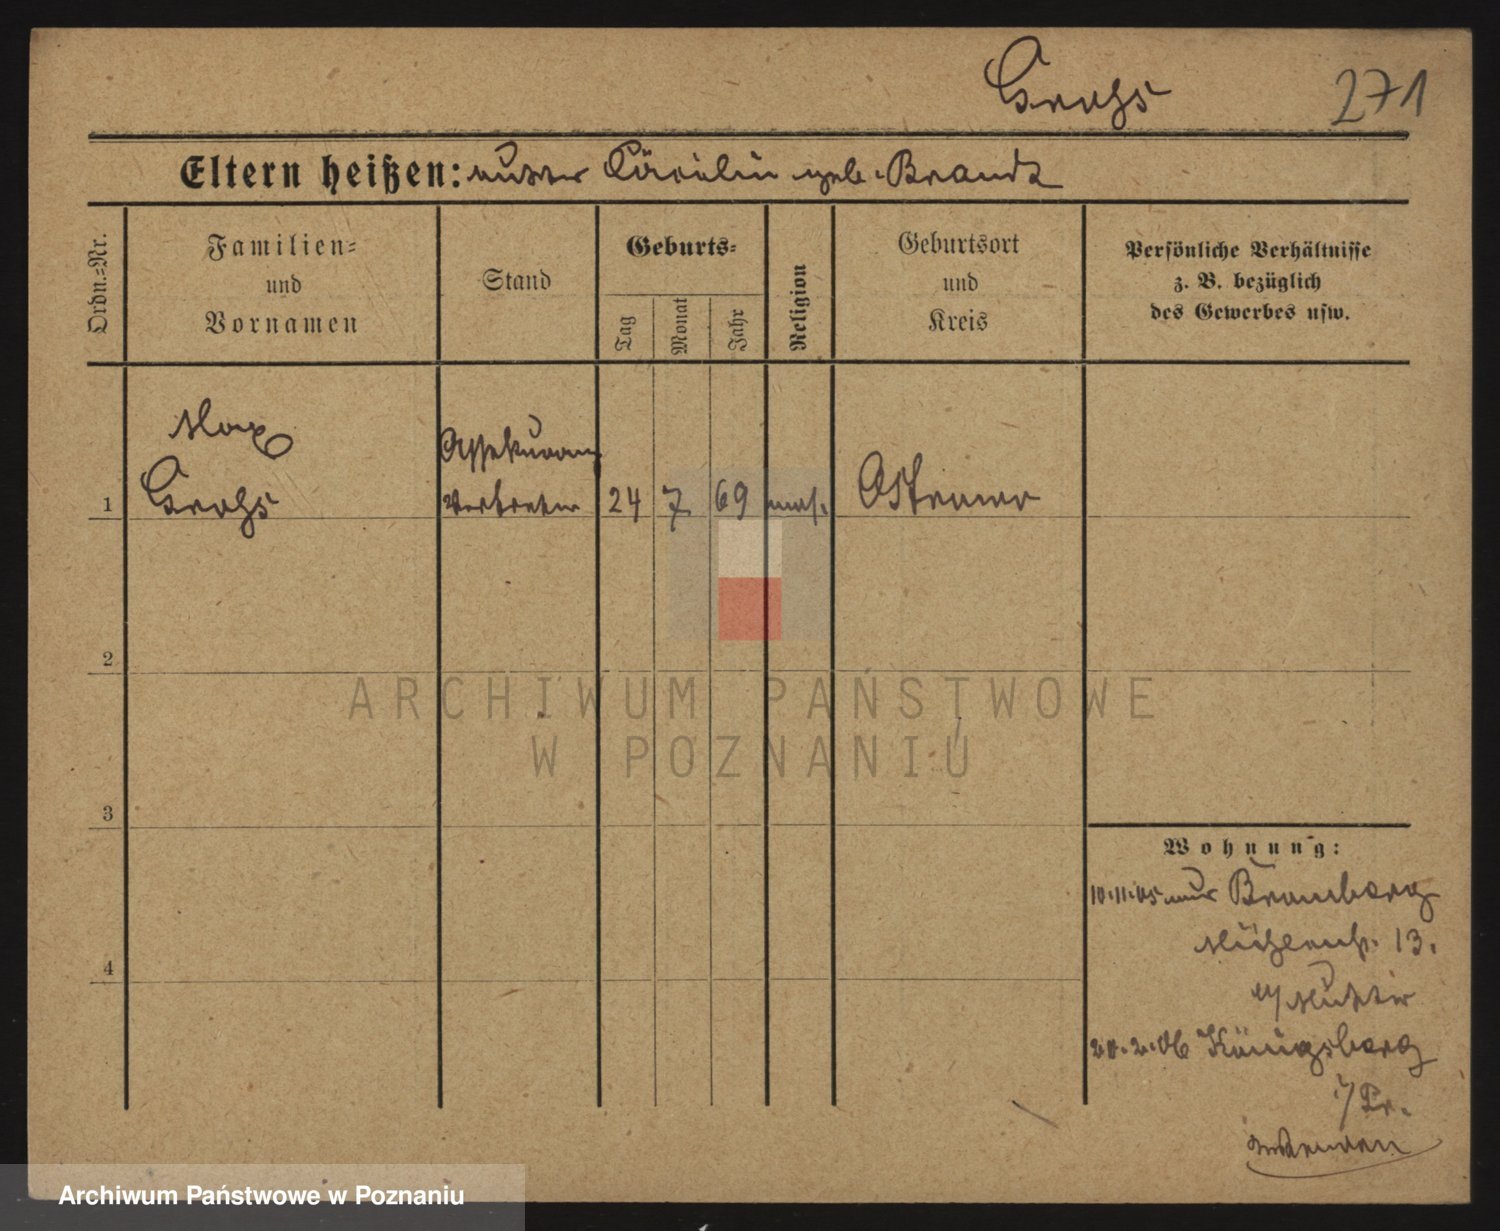 Grohs 271
Eltern heißen: Mutter Cäcilie geb. Brandt
Ordn.=Nr.
Familien=
und
Vornamen
Stand
Geburts=
Tag
Monat
Jahr
Religion
Geburtsort
und
Kreis
Persönliche Verhältnisse
z. B. bezüglich
des Gewerbes usw.
Max
Grohs
Assekuranz
Vertreter
1
24 7 69
mos.
2
3
4
ARCHIWUM PAŃSTWOWE
W POZNANIU
Wohnung:
10.11.05 Bromberg
13.
Mutter
20.2.06 Königsberg
i/Pr.
Archiwum Państwowe w Poznaniu